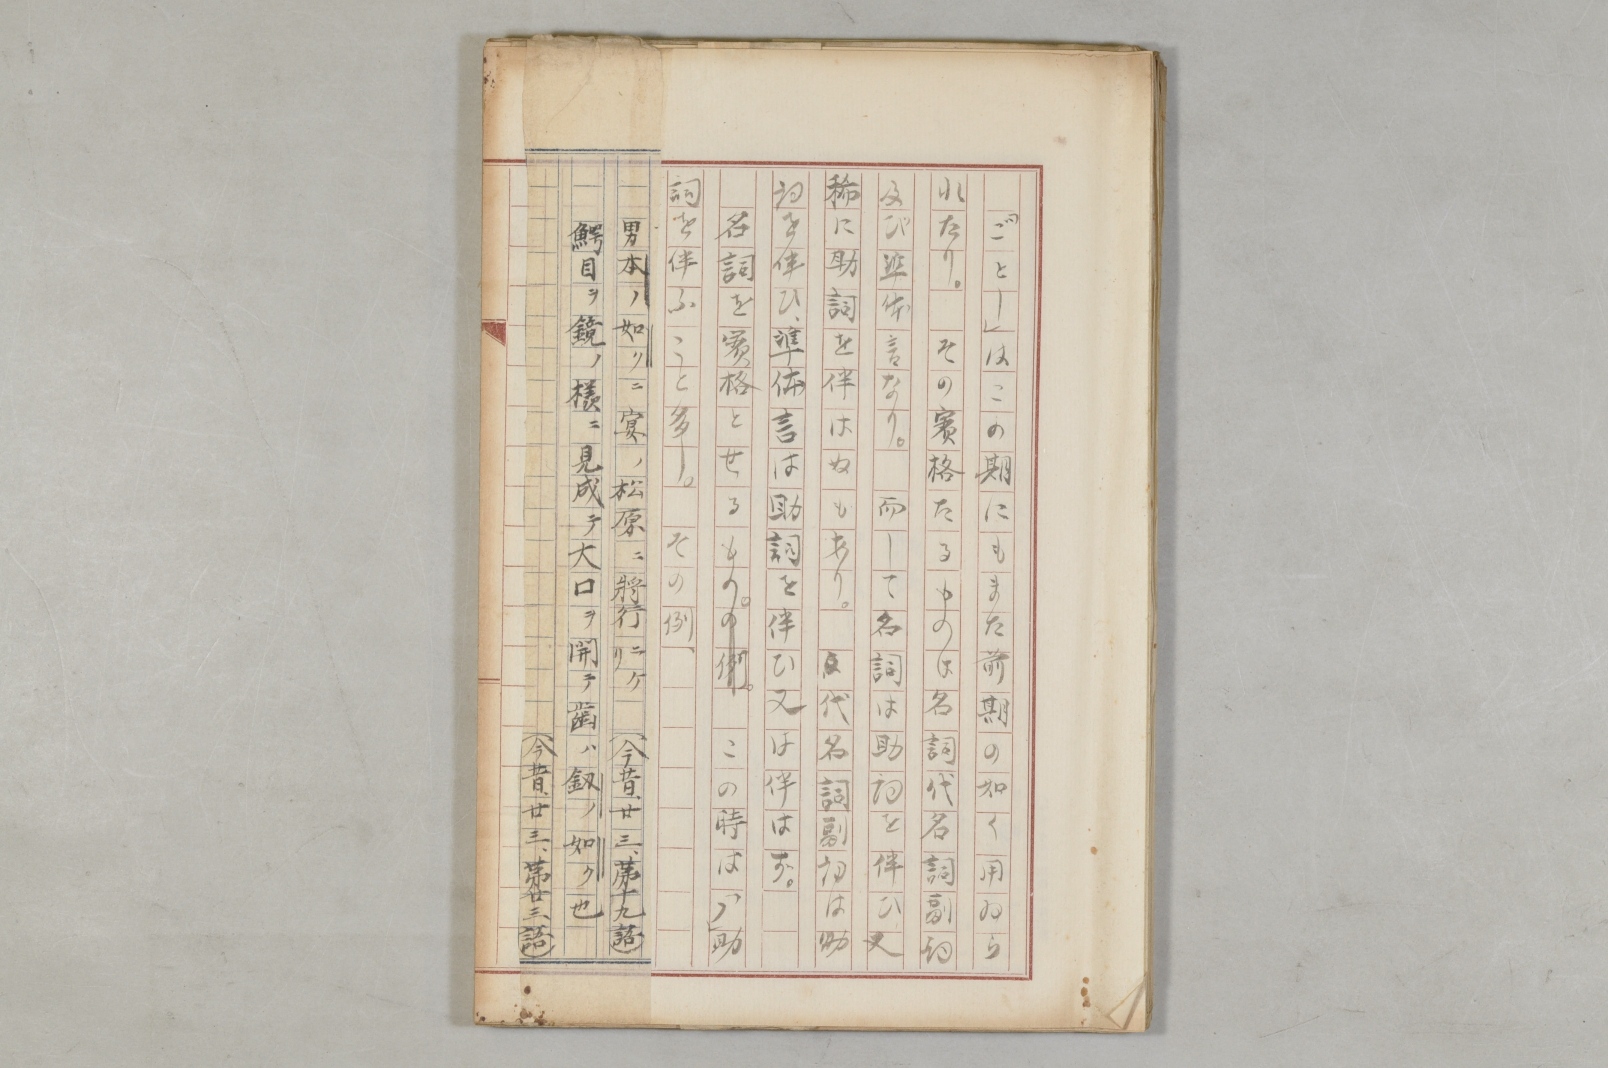 「ごとし」はこの期にもまた前期の如く用ゐら
れたり。その賓格たるものは名詞代名詞副詞
及び準体言なり。而して名詞は助詞を伴ひ又
稀に助詞を伴はぬもあり。代名詞副詞は助
詞を伴ひ、準体言は助詞を伴ひ又は伴はず。
名詞を賓格とせるもの。の例。この時は「ノ」助
詞を伴ふこと多し。その例、
男本ノ如リニ宴ノ松原ニ將行ニケリ
(今昔、廿三、第十九語)
鰐目ヲ鏡ノ様ニ見成テ大口ヲ開テ歯ハ釼ノ如ク也
(今昔、廿三、第廿三語)